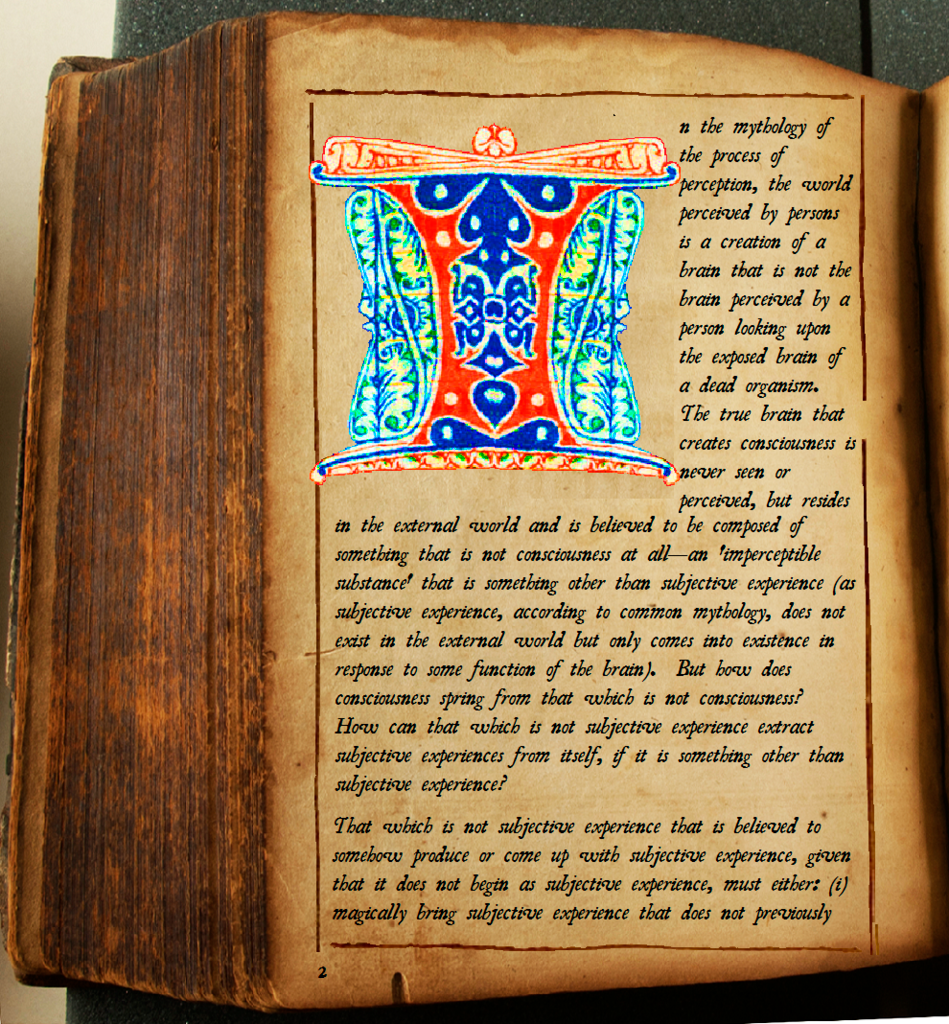 In the mythology of
the process of
perception, the world
perceived by persons
is a creation of a
brain that is not the
brain perceived by a
person looking upon
the exposed brain of
a dead organism.
The true brain that
creates consciousness is
never seen or
perceived, but resides
in the external world and is believed to be composed of
something that is not consciousness at all—an 'imperceptible
substance' that is something other than subjective experience (as
subjective experience, according to common mythology, does not
exist in the external world but only comes into existence in
response to some function of the brain). But how does
consciousness spring from that which is not consciousness?
How can that which is not subjective experience extract
subjective experiences from itself, if it is something other than
subjective experience?
That which is not subjective experience that is believed to
somehow produce or come up with subjective experience, given
that it does not begin as subjective experience, must either: (i)
magically bring subjective experience that does not previously
2